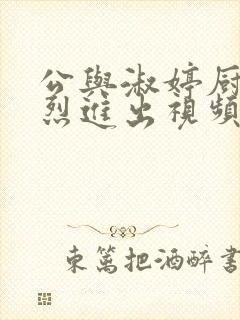 公與淑婷厨
烈進出視頻
東篱把酒醉書